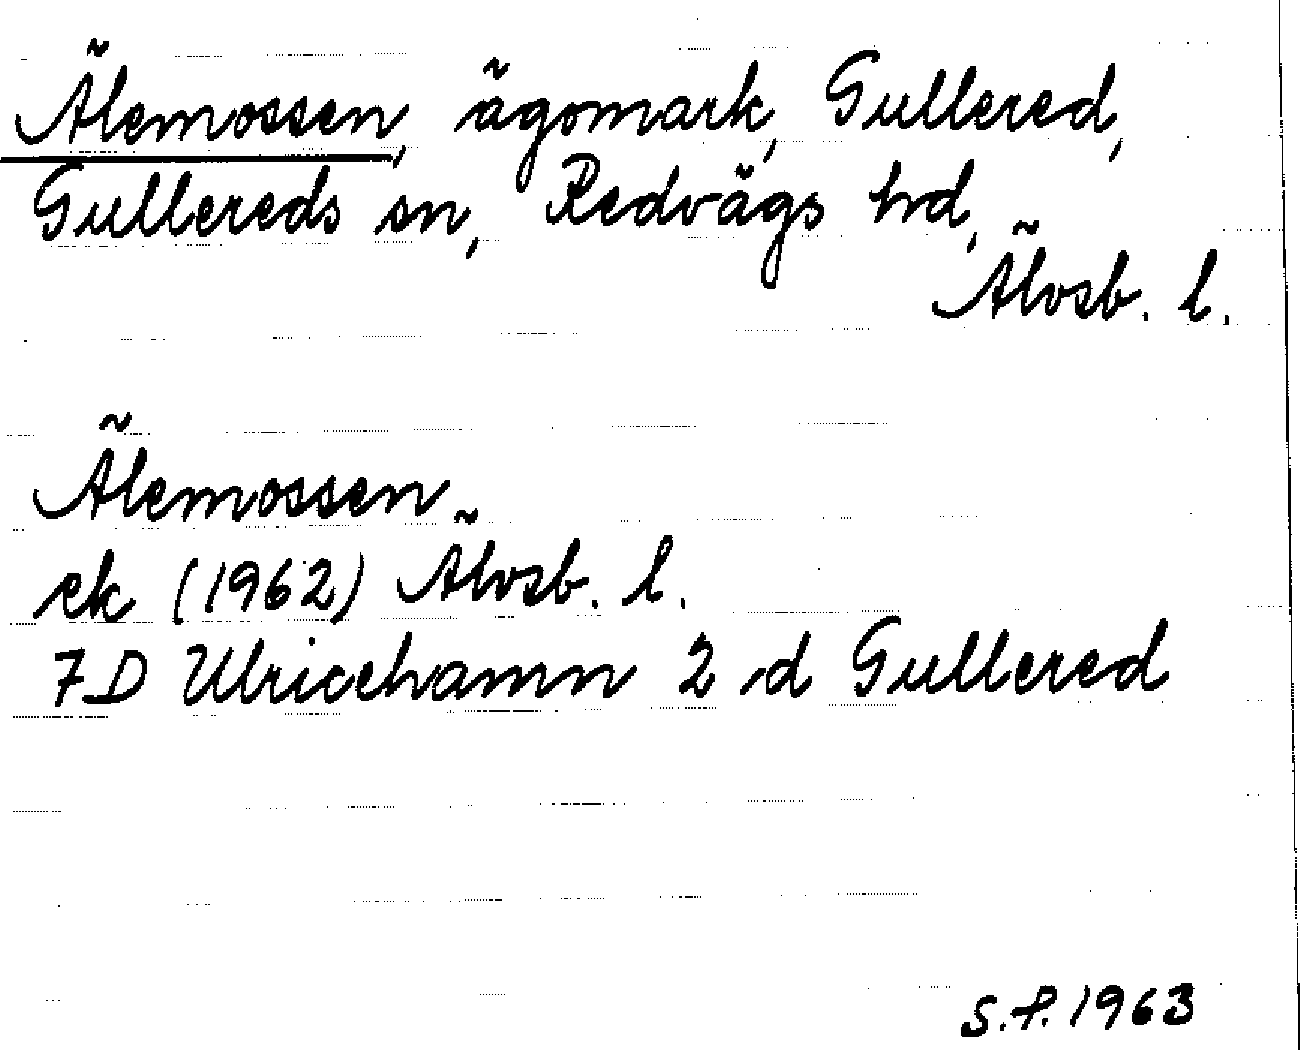 Älemossen, ägomark, Gullered,
Gullereds sn, Redvägs hd,
Älvsb. l.
Älemossen
ek (1962) Älvsb. l.
7D Ulricehamn 2 d Gullered
S.P. 1963